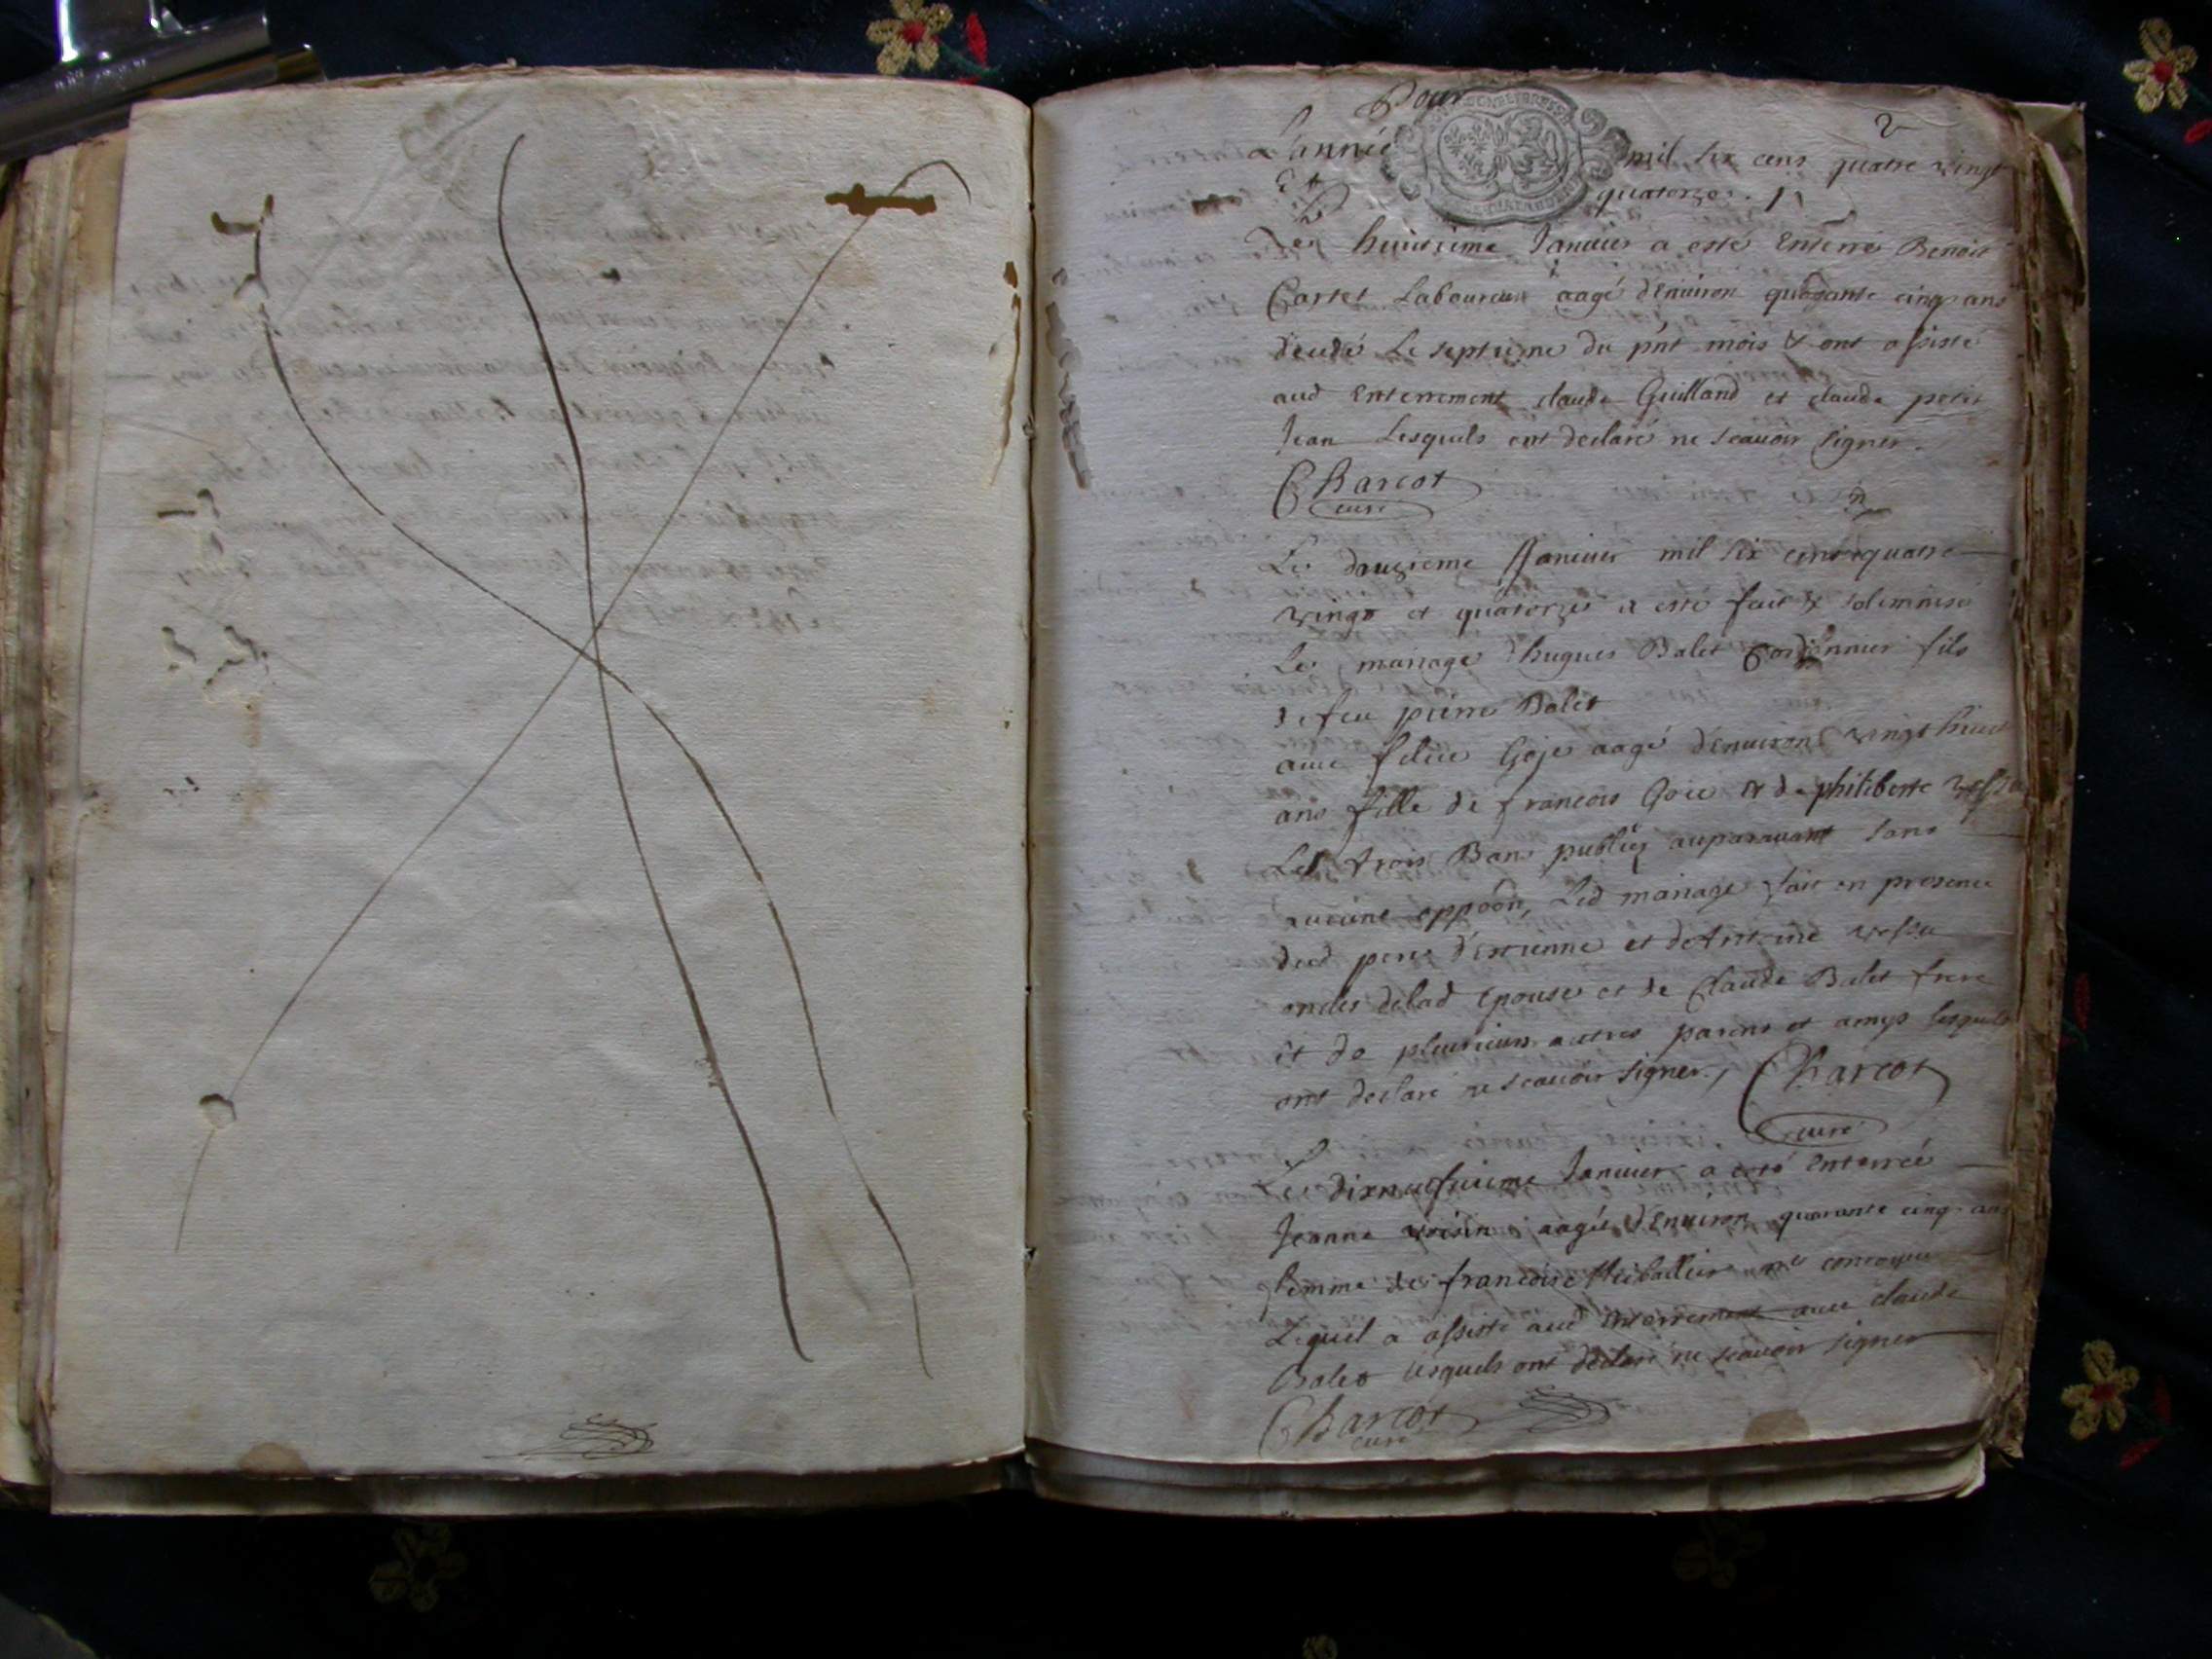 Pour
2
L'année mil six cens quatre vingt
quatorze.
Le huitieme Januier a esté Enterré Benoit
Cartet Laboureur aagé d'Enuiron quarante cinq ans
decedé Le septieme du pnt mois & ont assisté
aud Enterrement claude Guilland et claude petit
Jean Lesquels ont declaré ne scauoir signer.
Charcot
curé
Le douzieme Januier mil six cens quatre
vingt et quatorze a esté fait & solemnisé
Le mariage d'hugues Balet Cordonnier fils
de feu pierre Balet
auec filie Goje aagé d'enuiron vingt huit
ans fille de francois Goie et de philiberte
Les trois Bans publiéz auparauant sans
aucune oppoôn, Led mariage fait en presence
dud pere d'estienne et de Antoine
oncles de lad Epouse et de Claude Balet frere
et de plusieurs autres parens et amys lesquels
ont declaré ne scauoir signer, Charcot
curé
Le dixneufuieme Januier a esté Enterrée
Jeanne voisin aagée d'Enuiron quarante cinq ans
femme de francois me
Lequel a assisté aud Enterrement auec claude
Balet lesquels ont declaré ne scauoir signer
Charcot
curé